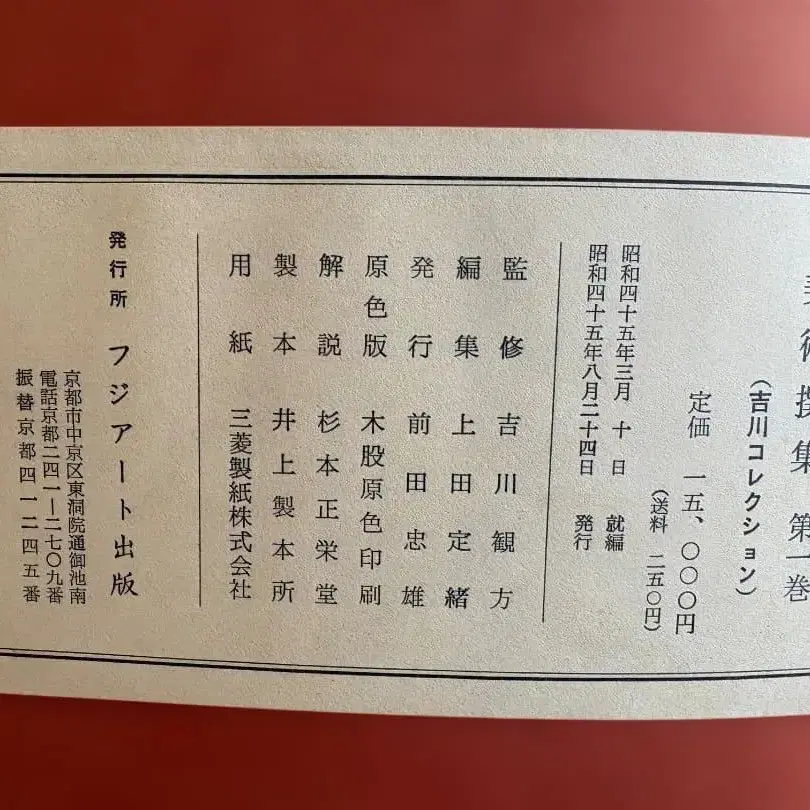 術撰集 第一巻
(吉川コレクション)
定価 一五、〇〇〇円
(送料 二五〇円)
昭和四十五年三月 十 日 就編
昭和四十五年八月二十四日 発行
監修 吉川観方
編集 上田定緒
発行 前田忠雄
原色版 木股原色印刷
解説 杉本正栄堂
製本 井上製本所
用紙 三菱製紙株式会社
発行所 フジアート出版
京都市中京区東洞院通御池南
電話京都二四一―二七〇九番
振替京都四一二四五番